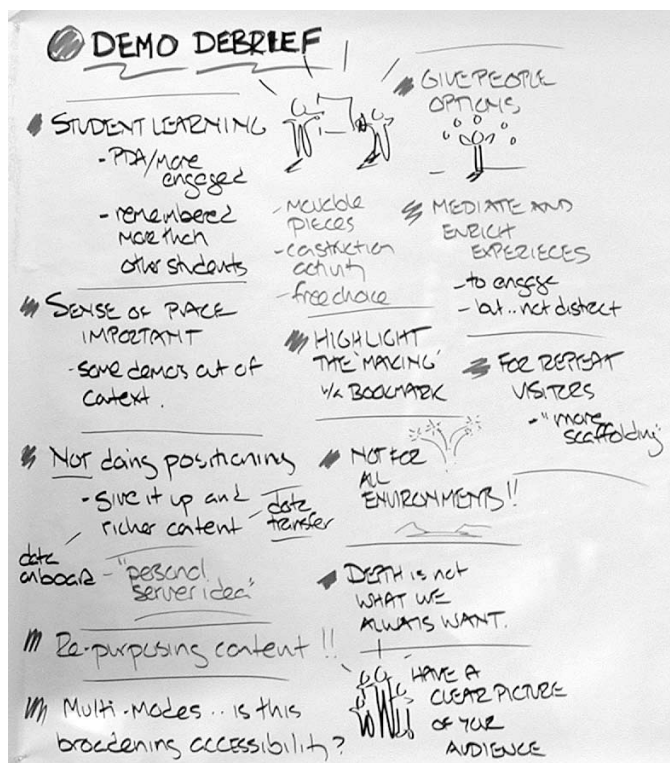 DEMO DEBRIEF
STUDENT LEARNING
- PDA/more
engaged
- remembered
more than
other students
SENSE OF PLACE
IMPORTANT
- some demos out of
context.
Not doing positioning
- give it up and
richer content - data
transfer
data
onboard - "personal
server idea"
Re-purposing content !!
Multi-modes .. is this
broadening accessibility?
- movable
pieces
- construction
activity
- free choice
HIGHLIGHT
THE 'MAKING'
w/a BOOKMARK
NOT FOR
ALL
ENVIRONMENTS!!
DEPTH is not
WHAT WE
ALWAYS WANT.
HAVE A
CLEAR PICTURE
OF YOUR
AUDIENCE
GIVE PEOPLE
OPTIONS
MEDIATE AND
ENRICH
EXPERIECES
- to engage
- but .. not distract
FOR REPEAT
VISITORS
- "more
scaffolding"